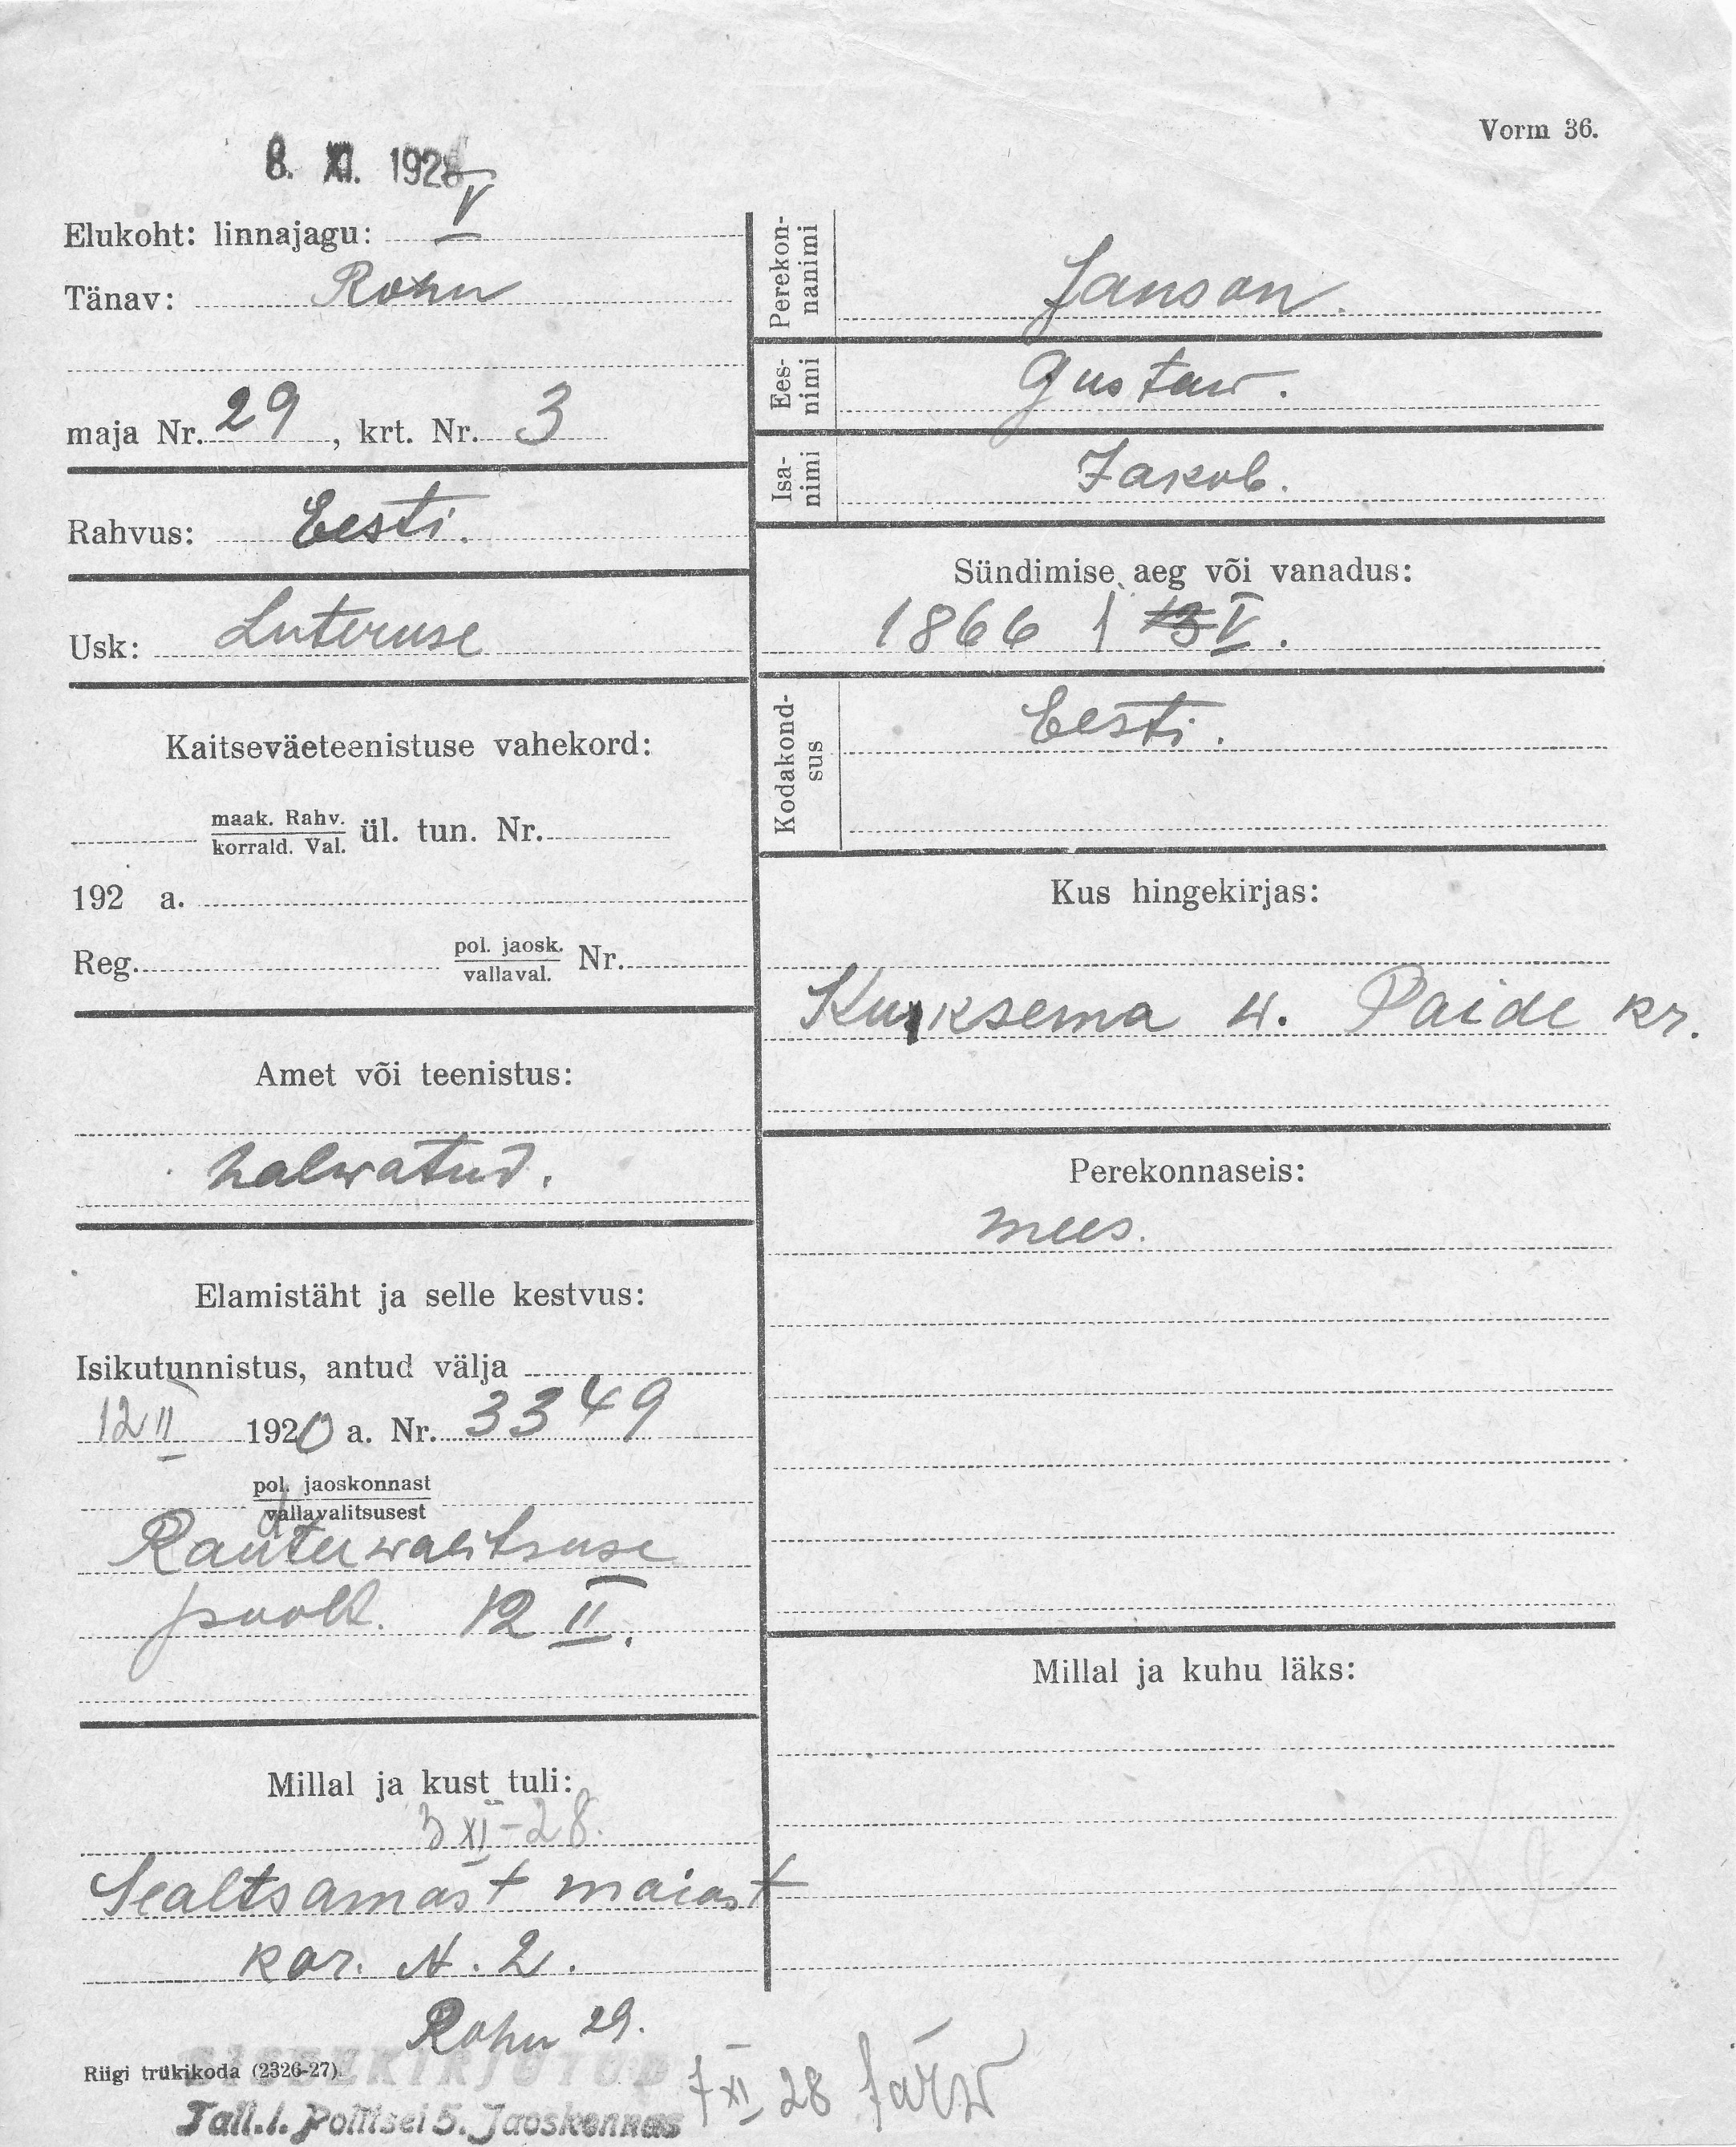 Vorm 36.
8. XI. 1928
Elukoht: linnajagu: V
Tänav: Rohu
maja Nr. 29, krt. Nr. 3
Rahvus: Eesti.
Usk: Luteruse
Kaitseväeteenistuse vahekord:
maak. Rahv.
korrald. Val. ül. tun. Nr.
192 a.
Reg. pol. jaosk.
vallaval. Nr.
Amet või teenistus:
halwatud.
Elamistäht ja selle kestvus:
Isikutunnistus, antud välja
12 II 1920 a. Nr. 3349
pol. jaoskonnast
vallavalitsusest
poolt. 12 II.
Millal ja kust tuli:
3 XI-28.
Sealtsamast maiast
kor. N. 2.
Rohu 29.
Riigi trükikoda (2326-27).
SISSEKIRJUTUD
Tall.l. Politsei 5. Jaoskonnas
Perekon-
nanimi
Janson.
Ees-
nimi
Gustaw.
Isa-
nimi
Jakob.
Sündimise aeg või vanadus:
1866 1 13 V.
Kodakond-
sus
Eesti.
Kus hingekirjas:
Kurksema w. Paide kr.
Perekonnaseis:
mees.
Millal ja kuhu läks:
7 XI 28